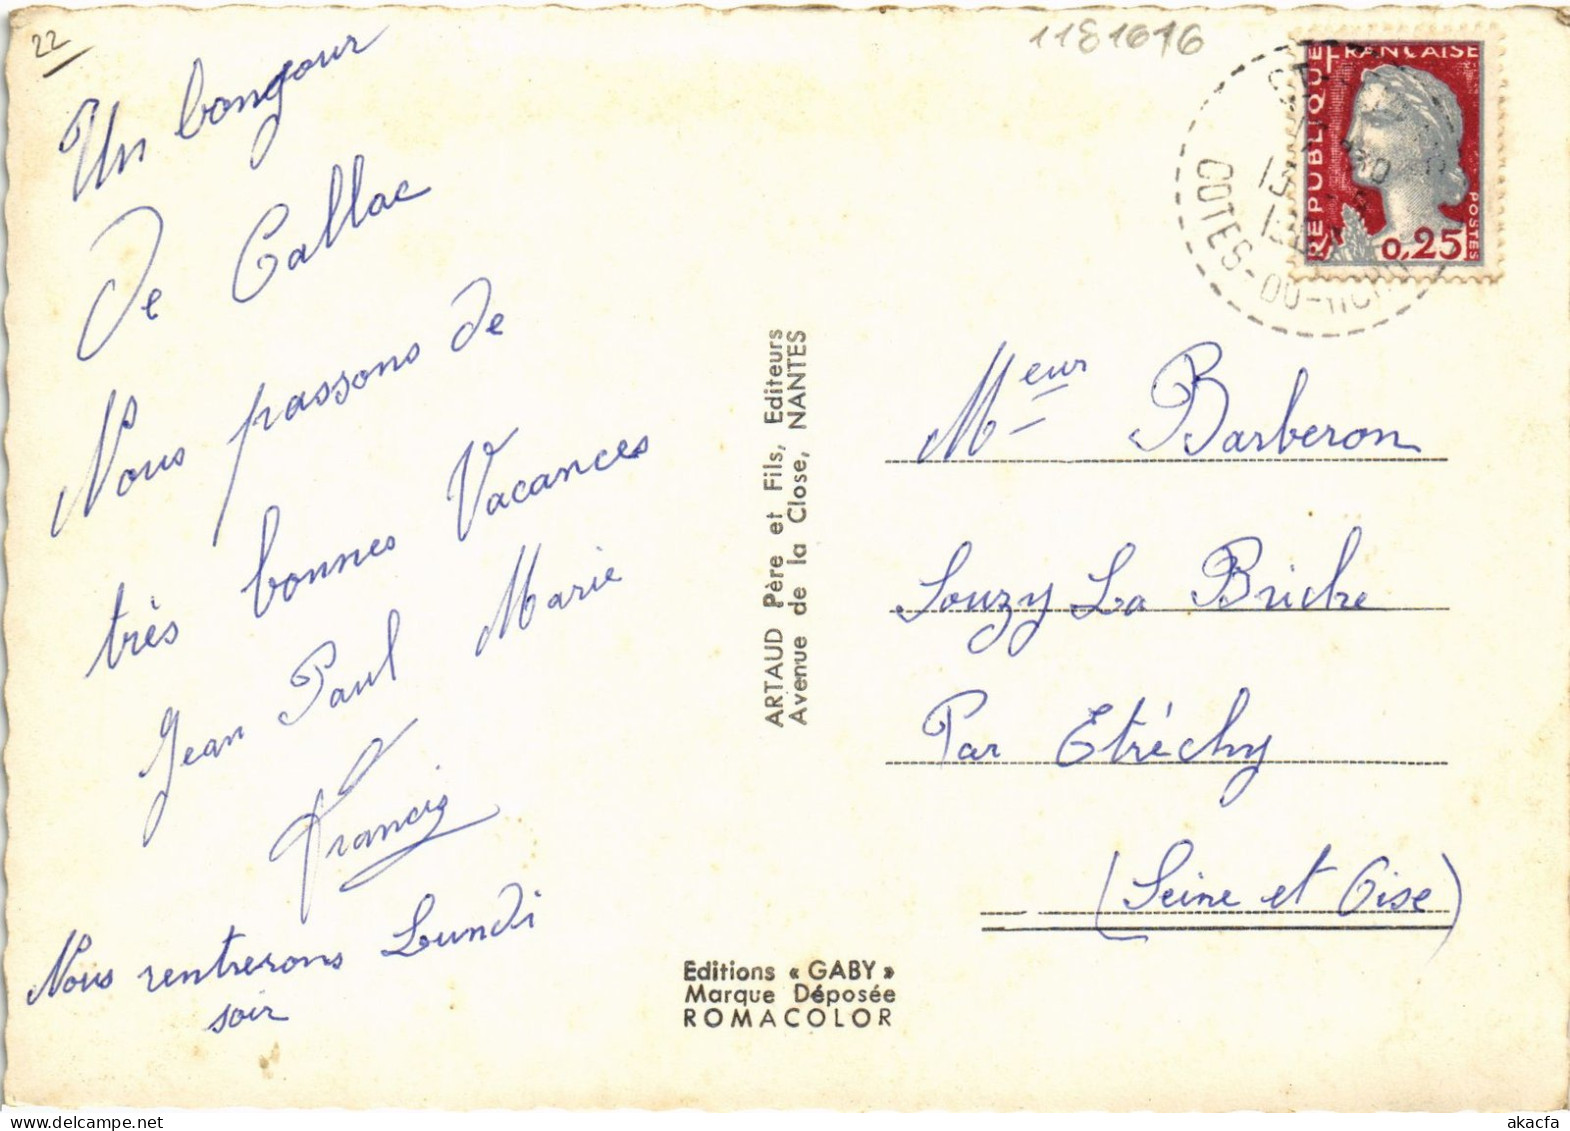 22
Un bongour
De Callac
Nous passons de
très bonnes Vacances
Jean Paul Marie
Francis
Nous rentrerons Lundi
soir
1181616
REPUBLIQUE FRANÇAISE
POSTES
0,25
13
COTES-DU-NORD
ARTAUD Père et Fils, Editeurs
Avenue de la Close, NANTES
Meur Barberon
Souzy La Briche
Par Etréchy
(Seine et Oise)
Editions « GABY »
Marque Déposée
ROMACOLOR
www.delcampe.net
akacfa